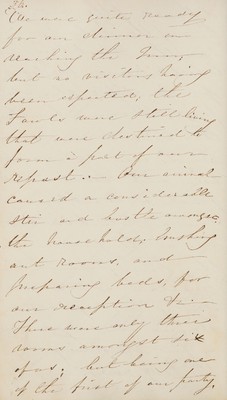 We were quite ready
for our dinner on
reaching the Inn,
but no visitors being
been expected, the
fowls were still living
that were destined to
form a part of our
repast :— Our arrival
caused a considerable
stir and bustle amongst
the household, brushing
out rooms, and
preparing beds, for
our reception &c —
There were only three
rooms amongst six
of us; but being one
of the first of our party,